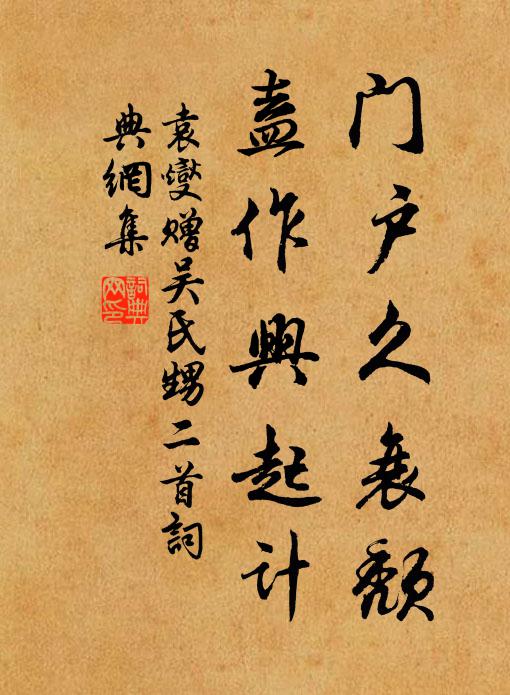 门户久衰颓
盍作興起计
袁燮赠吴氏甥二首詞
典網集
詞典
网印